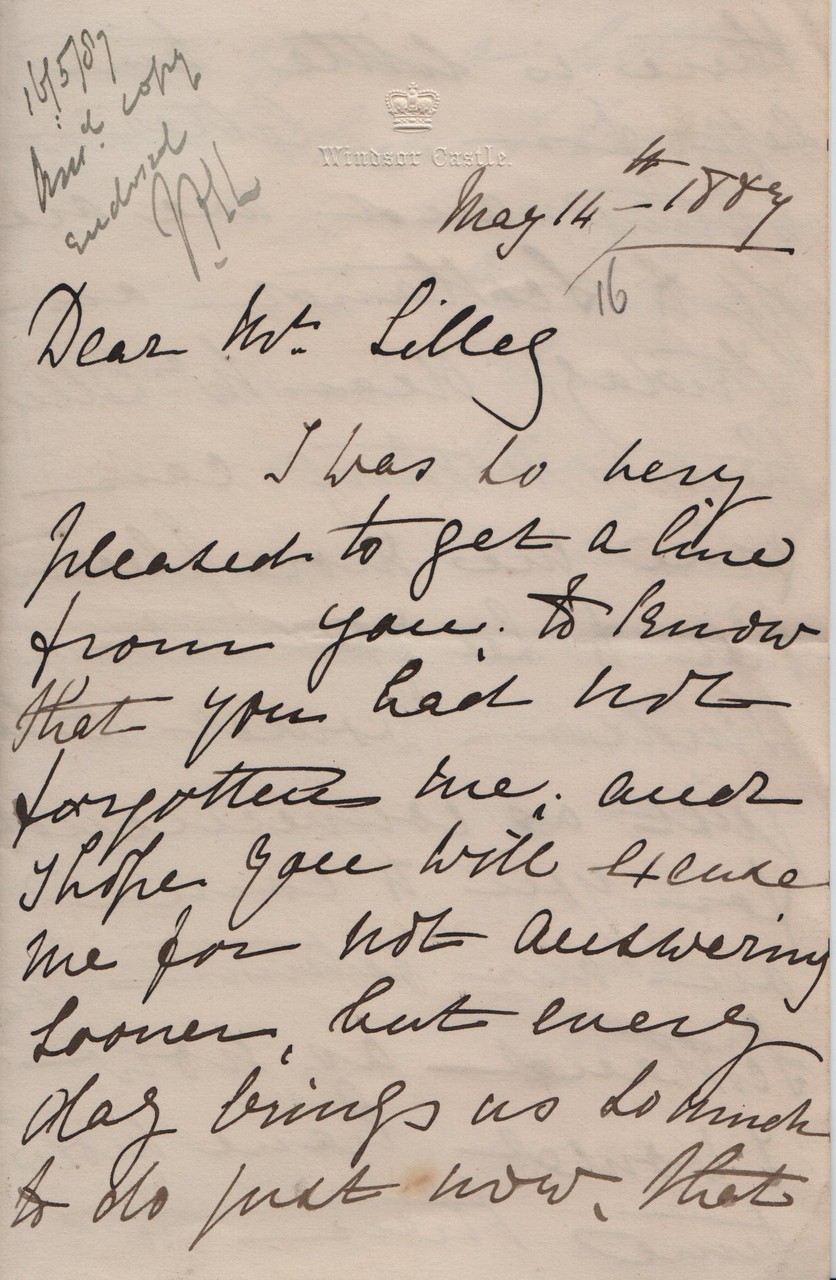 16/5/87
Ans.d copy
endorsed
Windsor Castle.
May 14th 1887
16
Dear Mr. Lilley
I was so very
pleased to get a line
from you, to know
that you had not
forgotten me, and
I hope you will excuse
me for not answering
sooner, but every
day brings us so much
to do just now, that